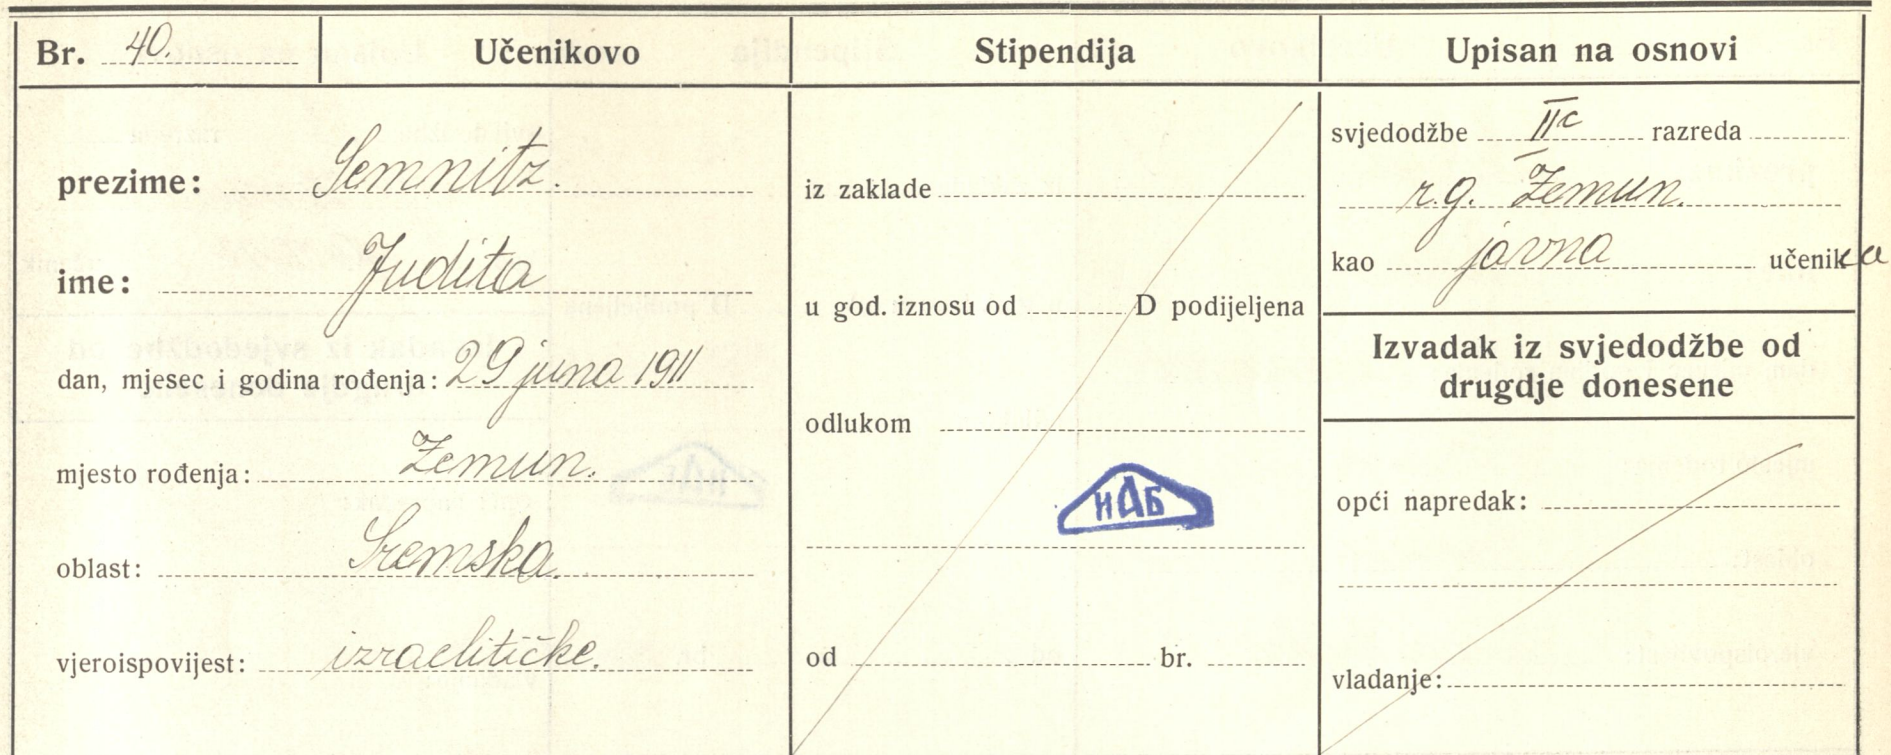 Br. 40. Učenikovo
prezime: Semnitz.
ime: Judita
dan, mjesec i godina rođenja: 29 juna 1911
mjesto rođenja: Zemun.
oblast: Sremska.
vjeroispovijest: izraelitičke.
Stipendija
iz zaklade
u god. iznosu od D podijeljena
odlukom
НАБ
od br.
Upisan na osnovi
svjedodžbe IIc razreda
r.g. Zemun.
kao javna učenika
Izvadak iz svjedodžbe od
drugdje donesene
opći napredak:
vladanje: